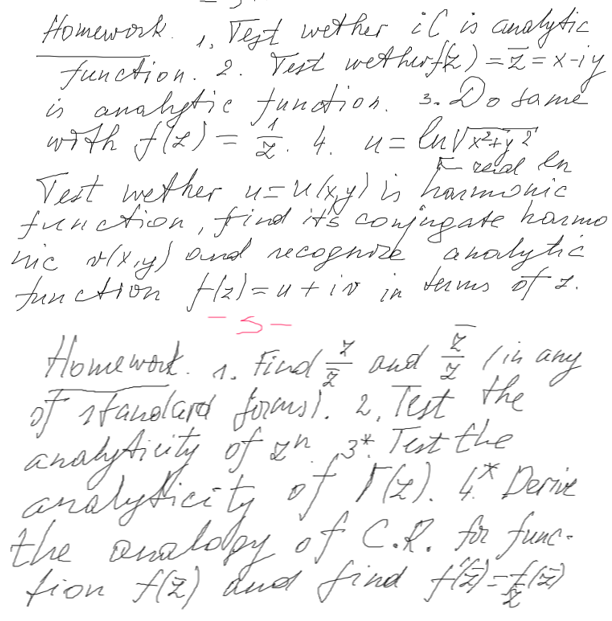 - 5 -
Homework. 1. Test wether iC is analytic
function. 2. Test wether f(z) = z̅ = x-iy
is analytic function. 3. Do same
with f(z) = 1/z. 4. u = ln√(x²+y²)
real ln
Test wether u = u(x,y) is harmonic
function, find its conjugate harmo
nic v(x,y) and recognize analytic
function f(z) = u + iv in terms of z.
- 5 -
Homework. 1. Find z/z̅ and z̅/z (in any
of standard forms). 2. Test the
analyticity of zⁿ. 3*. Test the
analyticity of Γ(z). 4.* Derive
the analogy of C.R. for func-
tion f(z̅) and find